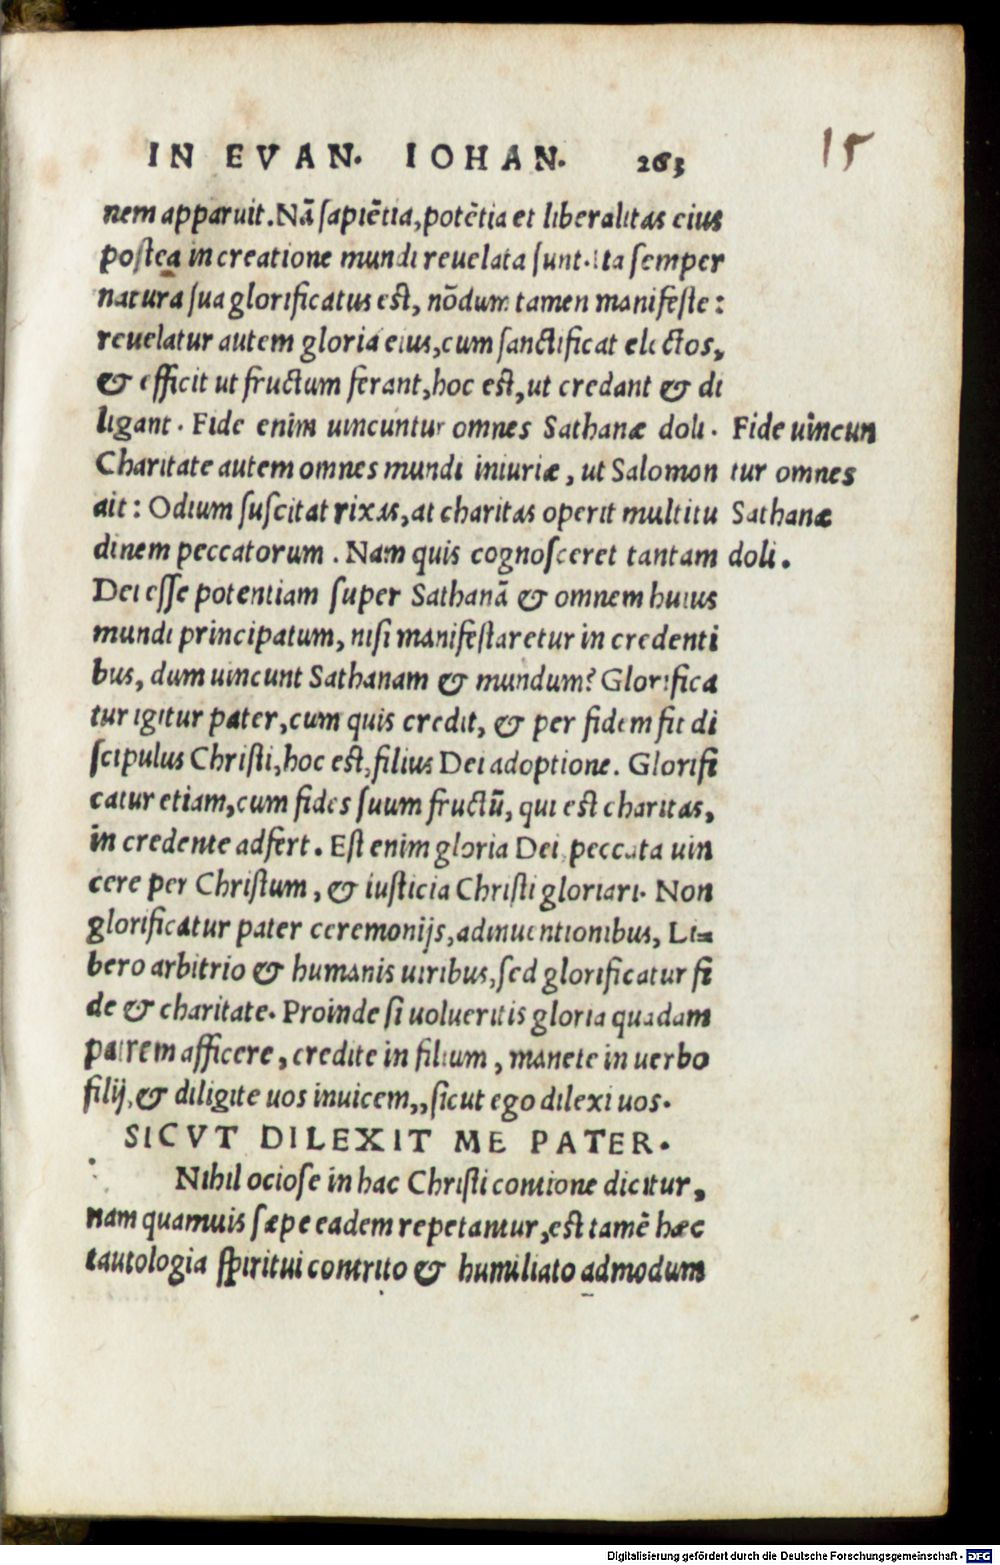 IN EVAN. IOHAN. 263
15
nem apparuit. Nã sapiẽtia, potẽtia et liberalitas eius
postea in creatione mundi reuelata sunt. Ita semper
natura sua glorificatus est, nõdum tamen manifeste:
reuelatur autem gloria eius, cum sanctificat electos,
& efficit ut fructum ferant, hoc est, ut credant & di
ligant. Fide enim uincuntur omnes Sathanæ doli.
Charitate autem omnes mundi iniuriæ, ut Salomon
ait: Odium suscitat rixas, at charitas operit multitu
dinem peccatorum. Nam quis cognosceret tantam
Dei esse potentiam super Sathanã & omnem huius
mundi principatum, nisi manifestaretur in credenti
bus, dum uincunt Sathanam & mundum? Glorifica
tur igitur pater, cum quis credit, & per fidem fit di
scipulus Christi, hoc est, filius Dei adoptione. Glorifi
catur etiam, cum fides suum fructũ, qui est charitas,
in credente adfert. Est enim gloria Dei peccata uin
cere per Christum, & iusticia Christi gloriari. Non
glorificatur pater ceremonijs, adinuentionibus, Li=
bero arbitrio & humanis uiribus, sed glorificatur fi
de & charitate. Proinde si uolueritis gloria quadam
patrem afficere, credite in filium, manete in uerbo
filij, & diligite uos inuicem,, sicut ego dilexi uos.
SICVT DILEXIT ME PATER.
Nihil ociose in hac Christi contione dicitur,
nam quamuis sæpe eadem repetantur, est tamẽ hæc
tautologia spiritui contrito & humiliato admodum
Fide uincun
tur omnes
Sathanæ
doli.
Digitalisierung gefördert durch die Deutsche Forschungsgemeinschaft - DFG